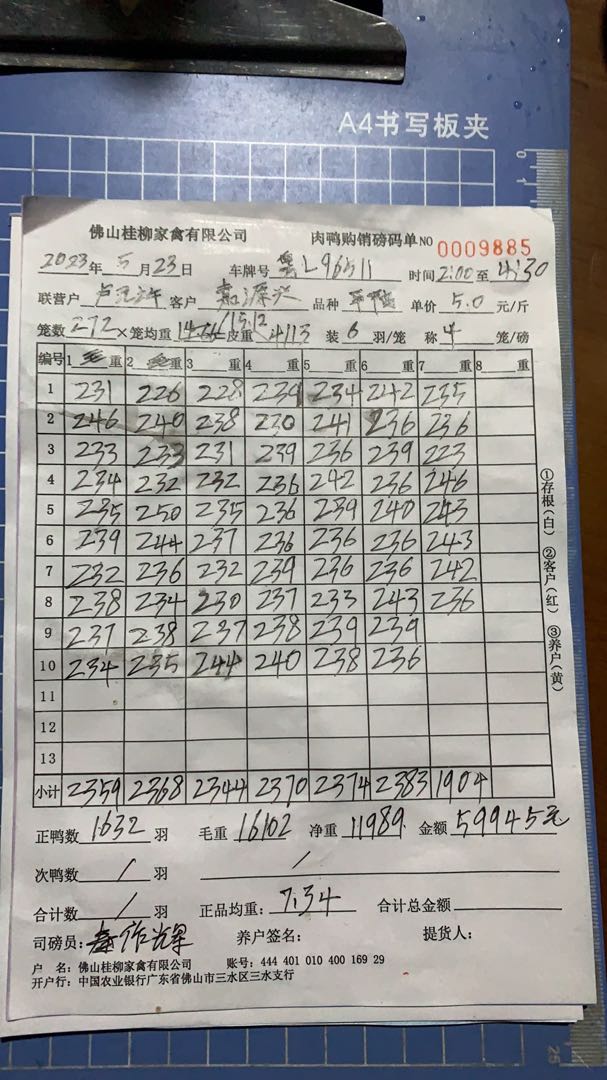 A4书写板夹
佛山桂柳家禽有限公司 肉鸭购销磅码单NO 0009885
2023年5月23日 车牌号 粤L96511 时间2:00至4:30
联营户 客户 嘉源兴 品种 单价5.0元/斤
笼数272×笼均重 15.12 皮重4113 装6羽/笼 称4笼/磅
编号 1 毛重 2 重 3 重 4 重 5 重 6 重 7 重 8 重
1 231 226 228 239 234 242 235
2 246 240 238 230 241 236 236
3 233 233 231 239 236 239 223
4 234 232 232 236 242 236 246
5 235 250 235 236 239 240 243
6 239 244 237 236 236 236 243
7 232 236 232 239 236 236 242
8 238 234 230 237 233 243 236
9 237 238 237 238 239 239
10 234 235 244 240 238 236
11
12
13
小计 2359 2368 2344 2370 2374 2383 1904
①存根(白) ②客户(红) ③养户(黄)
正鸭数1632羽 毛重16102 净重11989 金额59945元
次鸭数/羽 /
合计数/羽 正品均重:7.34 合计总金额
司磅员: 养户签名: 提货人:
户 名:佛山桂柳家禽有限公司 账号:444 401 010 400 169 29
开户行:中国农业银行广东省佛山市三水区三水支行
0
25